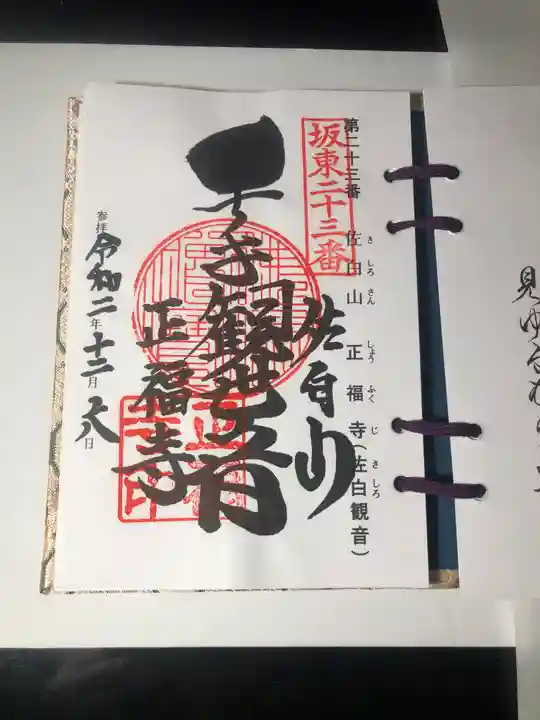 見ゆ
第二十三番 佐白山 正福寺(佐白観音)
さしろさん しょうふくじ さしろ
坂東二十三番
佐白山
千手観世音
正福寺
参拝 令和二年十二月六日